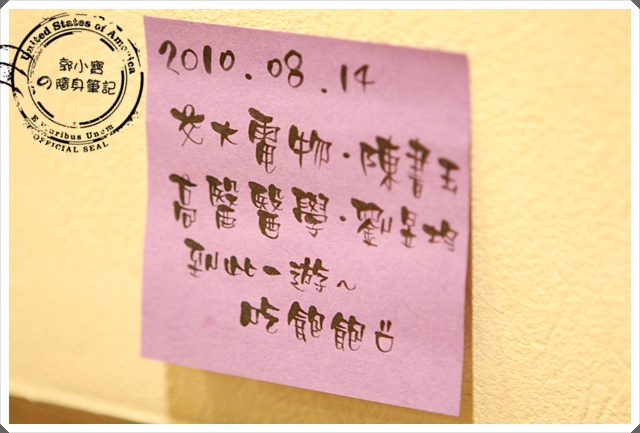 United States of America
郭小寶
の隨身筆記
E Pluribus Unum
OFFICIAL SEAL
2010.08.14
交大電物·陳書玉
高醫醫學·劉昱均
到此一遊~
吃飽飽